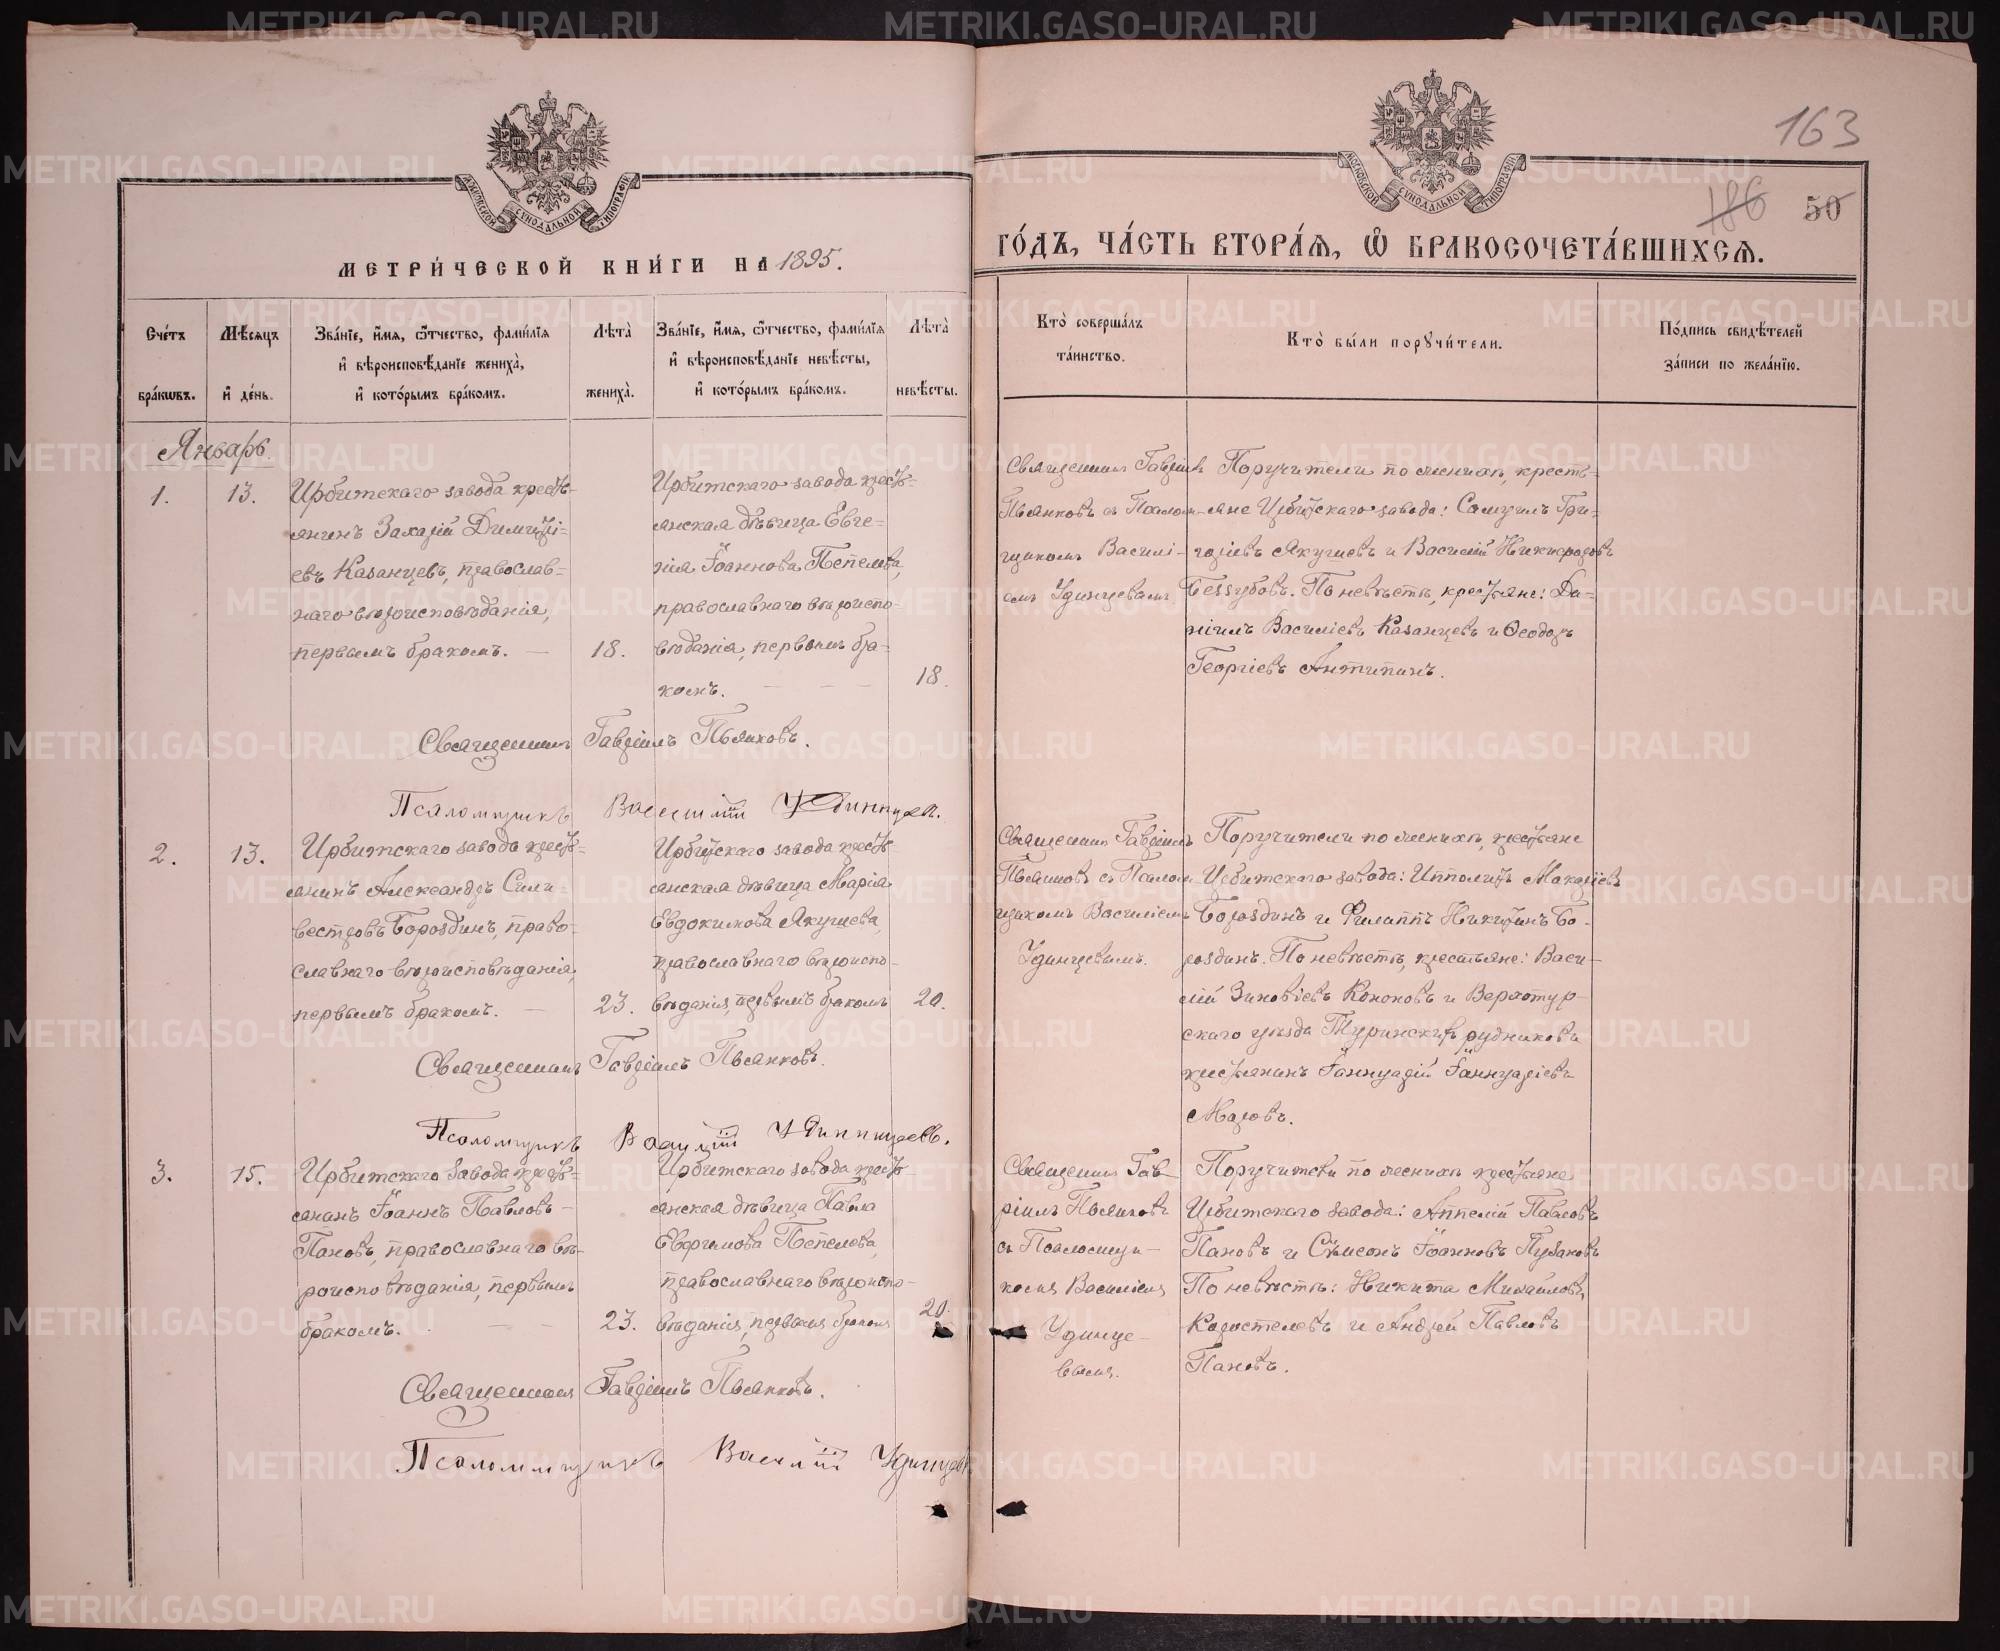 163
186 50
МЕТРИ́ЧЕСКОЙ КНИ́ГИ НА 1895.
ГО́ДЪ, ЧА́СТЬ ВТОРА́Я, Ѡ БРАКОСОЧЕТА́ВШИХСЯ.
МОСКОВСКОЙ СѴНОДАЛЬНОЙ ТИПОГРАФІИ
МОСКОВСКОЙ СѴНОДАЛЬНОЙ ТИПОГРАФІИ
Сче́тъ бра́кωвъ.
Мѣ́сяцъ и҆ де́нь.
Зва́нїе, и҆́мя, ѻ҆́тчество, фами́лїя
и҆ вѣроисповѣ́данїе жениха̀,
и҆ кото́рымъ бра́комъ.
Лѣта̀ жениха̀.
Зва́нїе, и҆́мя, ѻ҆́тчество, фами́лїя
и҆ вѣроисповѣ́данїе невѣ́сты,
и҆ кото́рымъ бра́комъ.
Лѣта̀ невѣ́сты.
Кто̀ соверша́лъ
та́инство.
Кто̀ бы́ли порꙋчи́тели.
По́дпись свидѣ́телей
за́писи по жела́нїю.
Январь.
1.
13.
Ирбитскаго завода кресть-
янинъ Захарій Димитрі-
евъ Казанцевъ, православ-
наго вѣроисповѣданія,
первымъ бракомъ. —
18.
Ирбитскаго завода кресть-
янская дѣвица Евге-
нія Іоаннова Пепелова,
православнаго вѣроиспо-
вѣданія, первымъ бра-
комъ. — — —
18.
Священникъ Гавріилъ
Пьянковъ съ Псалом-
щикомъ Василі-
емъ Удинцевымъ
Поручители по женихѣ, кресть-
яне Ирбитскаго завода: Самуилъ Гри-
горіевъ Якушевъ и Василій Никифоровъ
Беззубовъ. По невѣстѣ, крестьяне: Да-
ніилъ Василіевъ Казанцевъ и Ѳеодоръ
Георгіевъ Антипинъ.
Священникъ Гавріилъ Пьянковъ.
Псаломщикъ Василій Удинцевъ.
2.
13.
Ирбитскаго завода кресть-
янинъ Александръ Силь-
вестровъ Бороздинъ, право-
славнаго вѣроисповѣданія,
первымъ бракомъ. —
23.
Ирбитскаго завода кресть-
янская дѣвица Марія
Евдокимова Якушева,
православнаго вѣроиспо-
вѣданія, первымъ бракомъ
20.
Священникъ Гавріилъ
Пьянковъ съ Псалом-
щикомъ Василіемъ
Удинцевымъ.
Поручители по женихѣ, крестьяне
Ирбитскаго завода: Ипполитъ Макаріевъ
Бороздинъ и Филиппъ Никитинъ Бо-
роздинъ. По невѣстѣ, крестьяне: Васи-
лій Зиновіевъ Кононовъ и Верхотур-
скаго уѣзда Туринскихъ рудниковъ
крестьянинъ Іаннуарій Іаннуаріевъ
Мазовъ.
Священникъ Гавріилъ Пьянковъ.
Псаломщикъ Василій Удинцевъ.
3.
15.
Ирбитскаго завода кресть-
янинъ Іоаннъ Павловъ
Пановъ, православнаго вѣ-
роисповѣданія, первымъ
бракомъ. — —
23.
Ирбитскаго завода кресть-
янская дѣвица Павла
Евфимова Пепелова,
православнаго вѣроиспо-
вѣданія, первымъ бракомъ
20.
Священникъ Гав-
ріилъ Пьянковъ
съ Псаломщи-
комъ Василіемъ
Удинце-
вымъ.
Поручители по женихѣ крестьяне
Ирбитскаго завода: Аппелій Павловъ
Пановъ и Сѵмеонъ Іоанновъ Пузановъ
По невѣстѣ: Никита Михайловъ
Коростелевъ и Андрей Павловъ
Пановъ.
Священникъ Гавріилъ Пьянковъ.
Псаломщикъ Василій Удинцевъ
METRIKI.GASO-URAL.RU